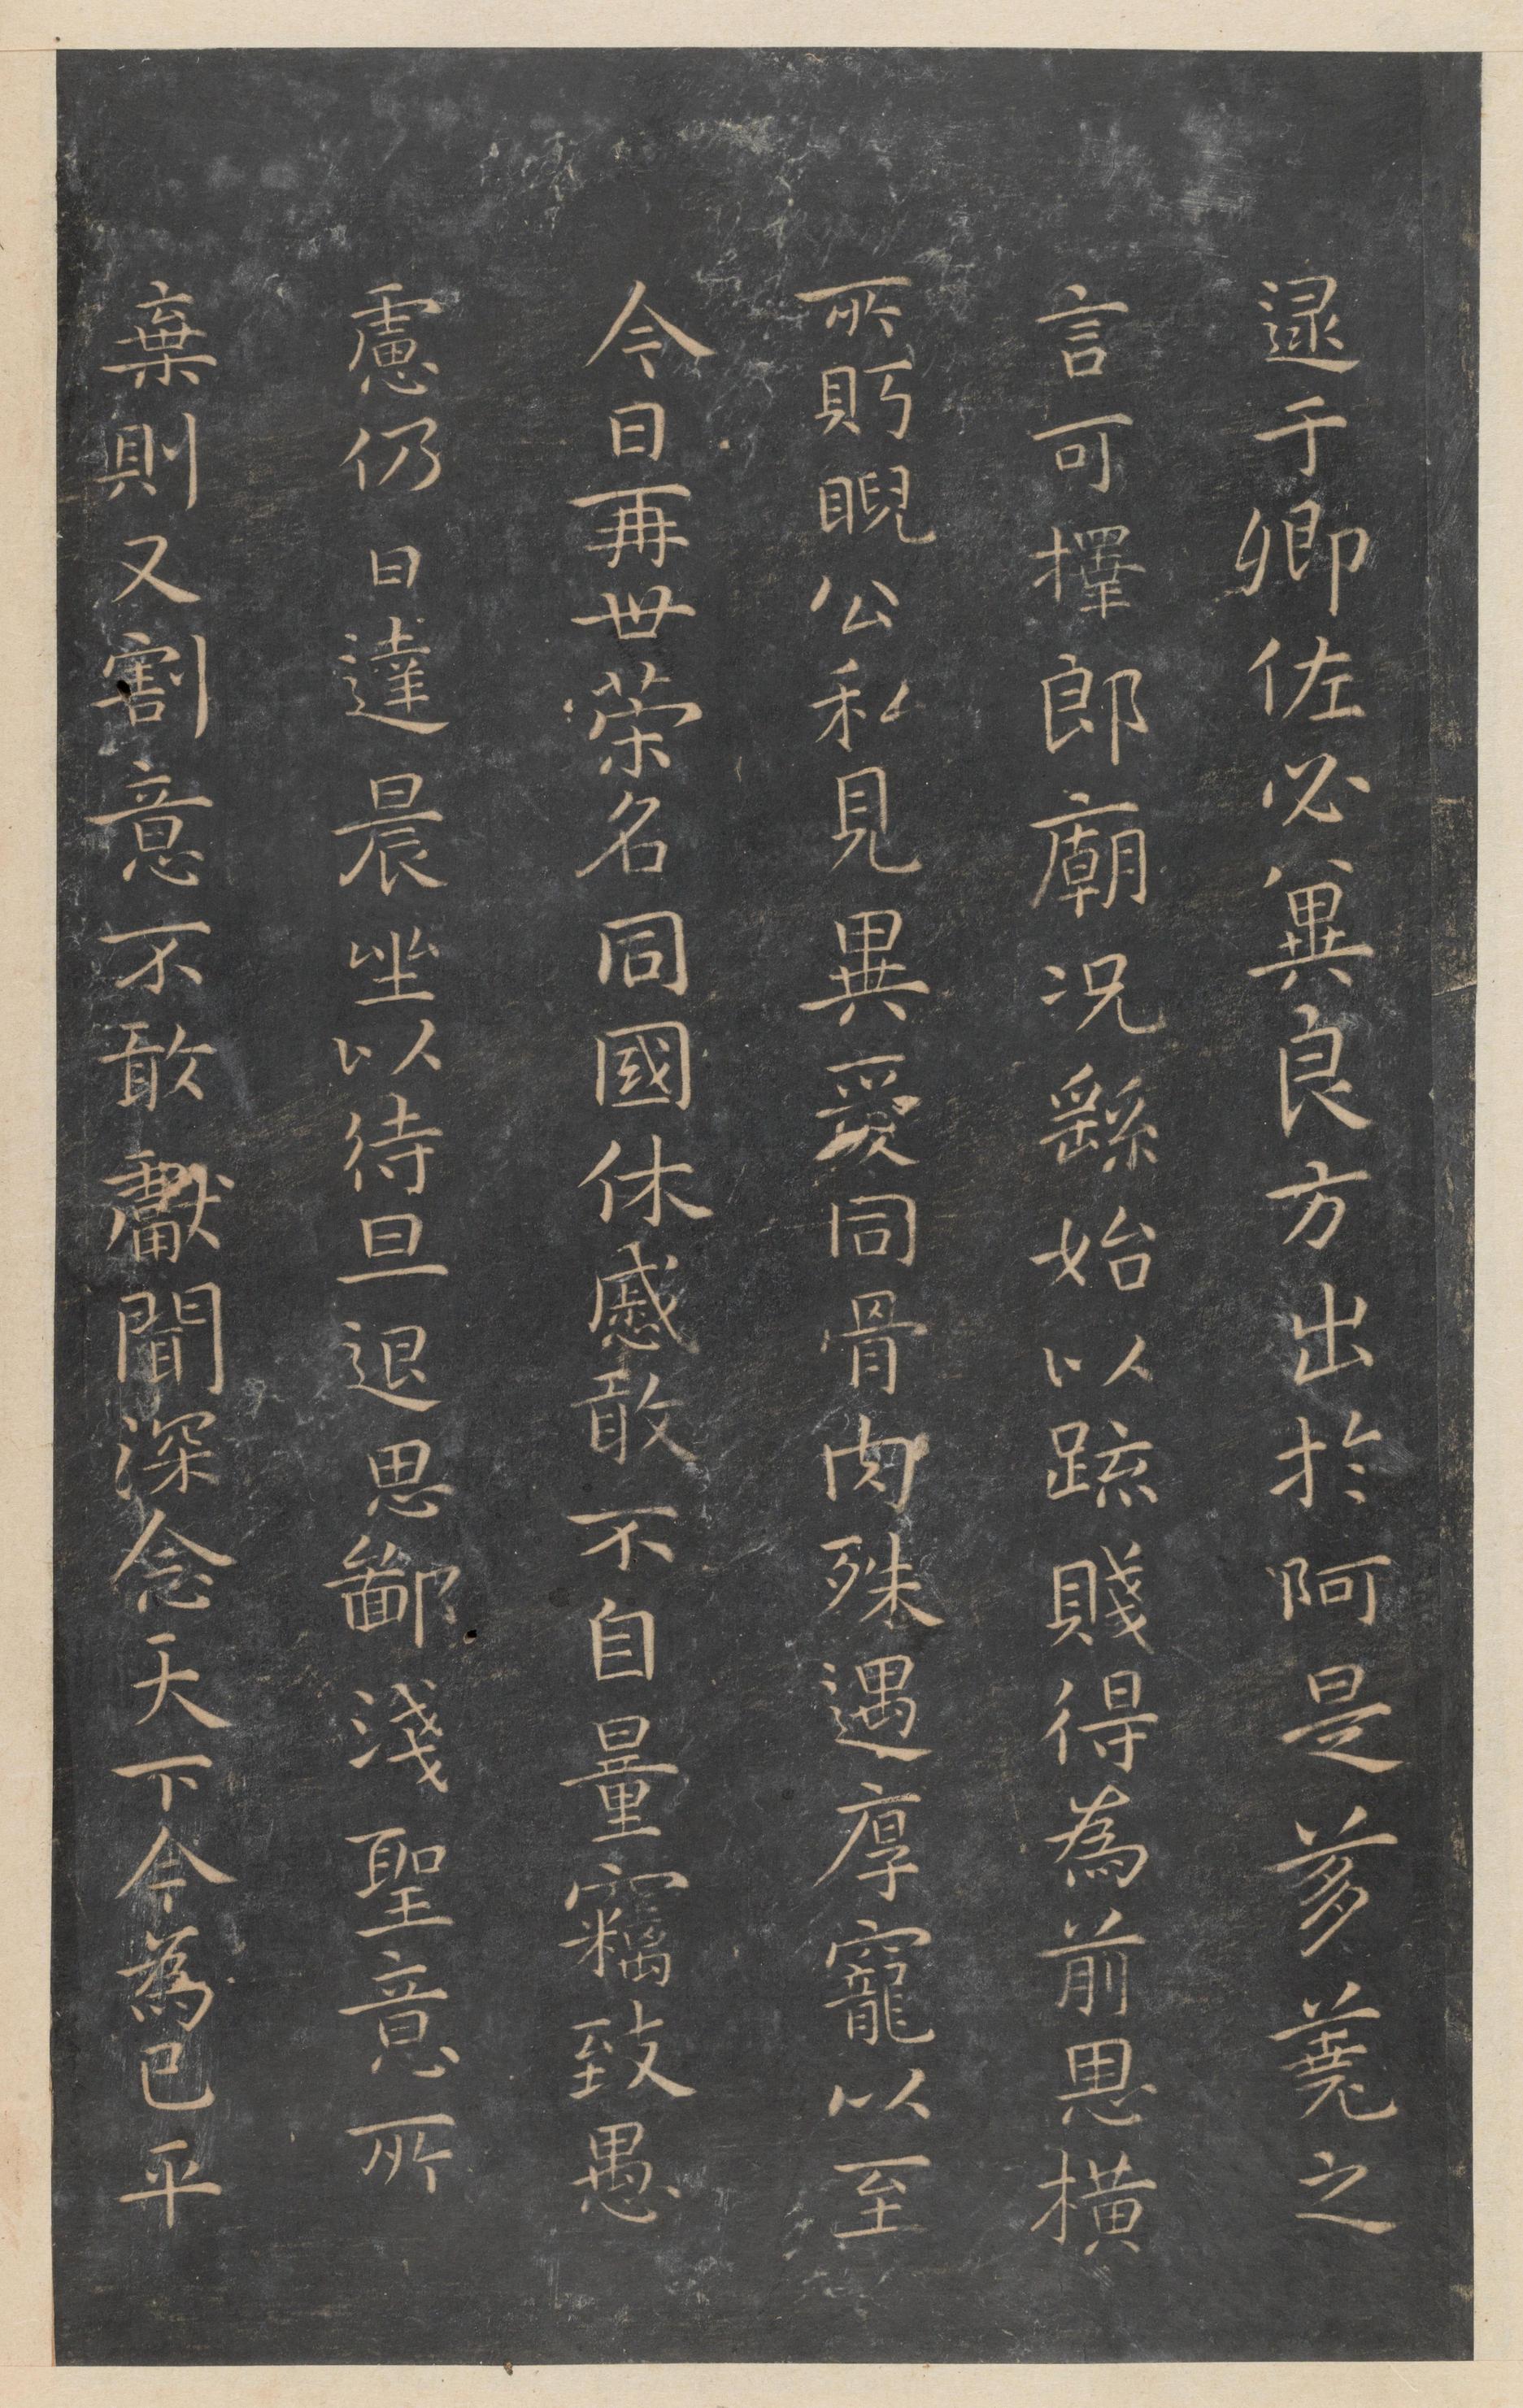 逮于卿佐必兾良方出於阿是芻蕘之
言可擇郎廟况繇始以疏賤得為前恩橫
所眄睨公私見異愛同骨肉殊遇厚寵以至
今日再世荣名同國休慼敢不自量竊致愚
慮仍日達晨坐以待旦退思鄙淺聖意所
棄則又割意不敢獻聞深念天下今為已平